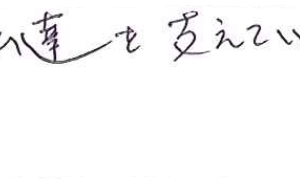 達を支えてい